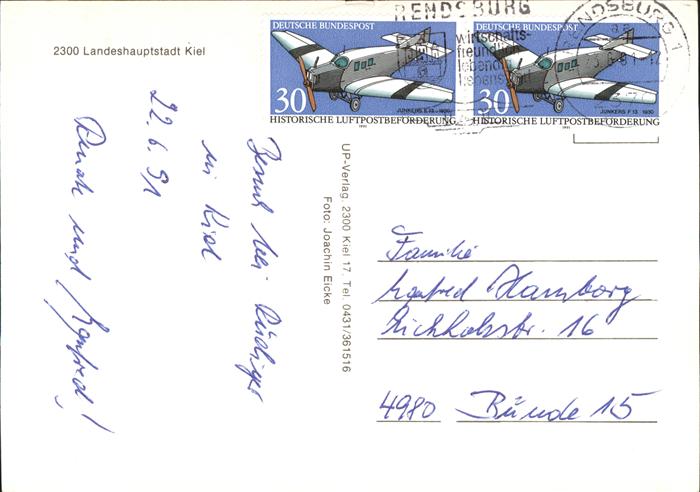 2300 Landeshauptstadt Kiel
RENDSBURG
wirtschafts-
freundlich
lebend
RENDSBURG 1
DEUTSCHE BUNDESPOST
30
JUNKERS F 13 · 1930
HISTORISCHE LUFTPOSTBEFÖRDERUNG
1991
DEUTSCHE BUNDESPOST
30
JUNKERS F 13 · 1930
HISTORISCHE LUFTPOSTBEFÖRDERUNG
1991
UP-Verlag, 2300 Kiel 17, Tel. 0431/361516
Foto: Joachim Eicke
Besuch bei Rüdiger
in Kiel
22.6.91
Renate und Manfred!
Familie
Manfred Hamborg
Eichholzstr. 16
4980 Bünde 15